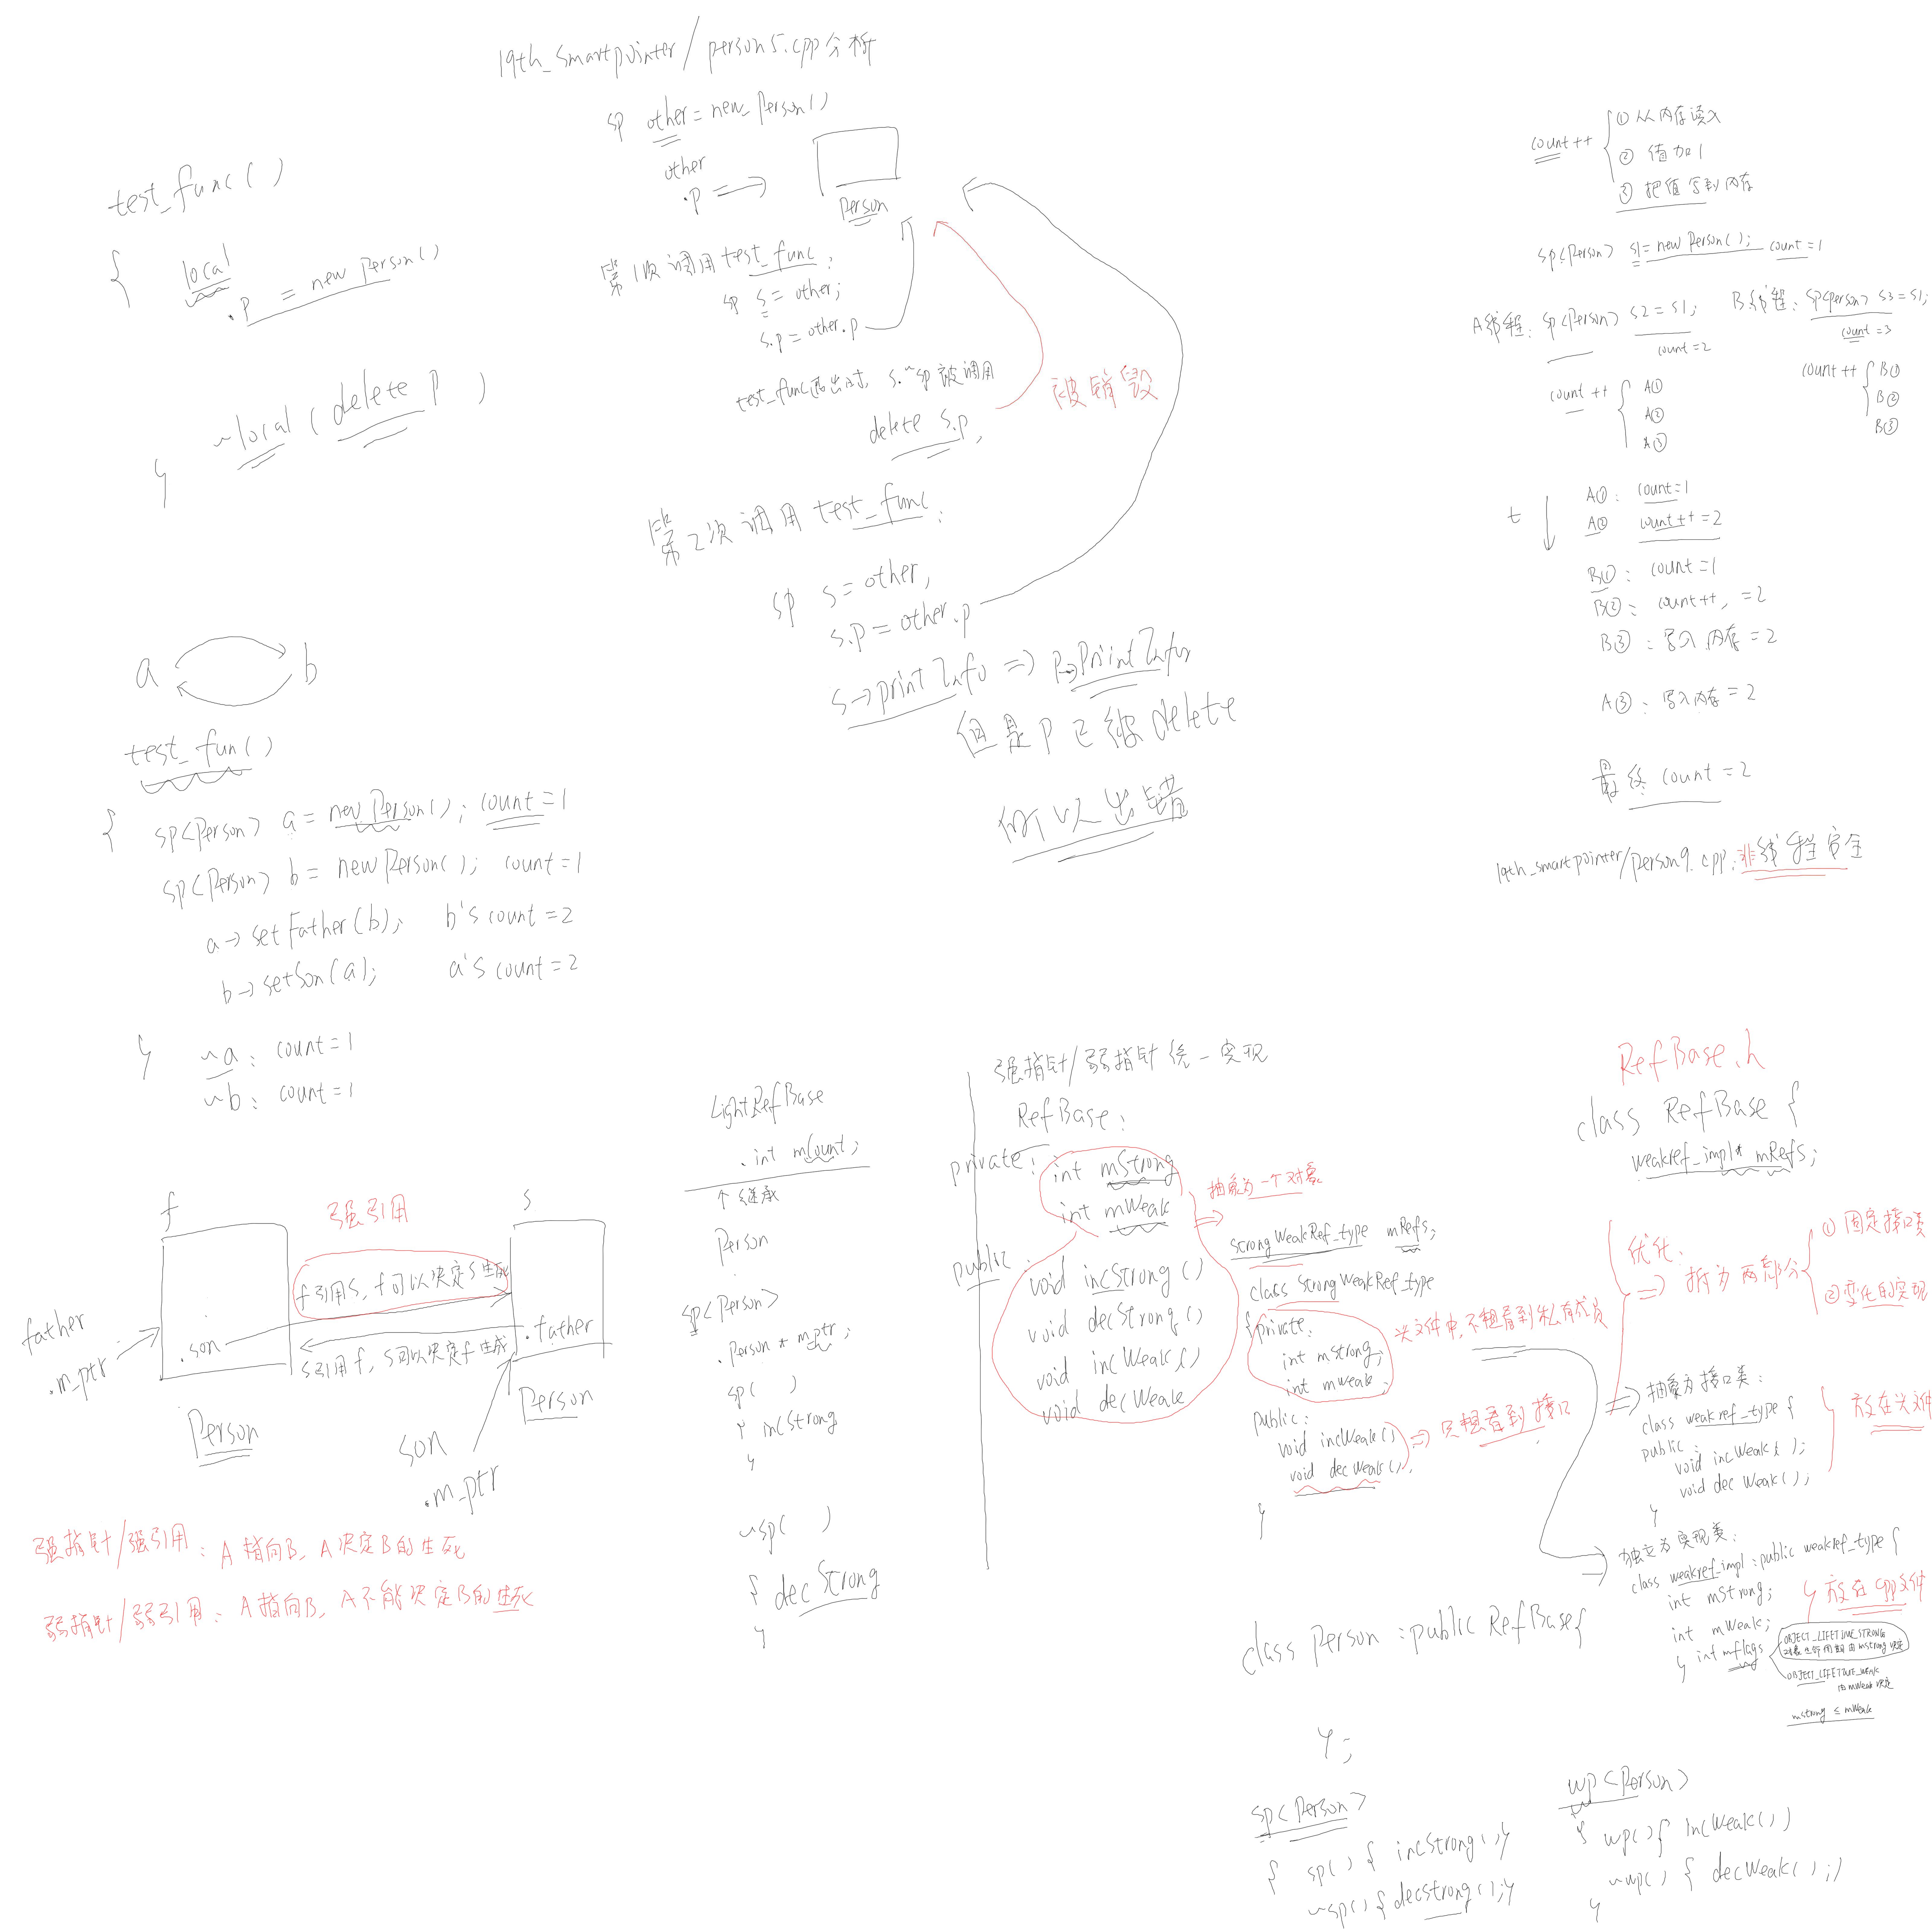 19th_smartpointer/person5.cpp分析
test_func()
{
local
.p = new Person()
~local (delete p)
}
sp other = new Person()
other
.p =>
Person
第1次调用test_func:
sp s = other;
s.p = other.p
test_func退出时, s.~sp被调用
delete s.p,
被销毁
第2次调用test_func:
sp s = other,
s.p = other.p
s->printInfo => p->printInfo
但是p已经delete
所以出错
count++
① 从内存读入
② 值加1
③ 把值写到内存
sp<Person> s1 = new Person(); count=1
A线程: sp<Person> s2 = s1;
count=2
B线程: sp<Person> s3 = s1;
count=3
count++
A①
A②
A③
count++
B①
B②
B③
t
A①: count=1
A② count++=2
B①: count=1
B②: count++, =2
B③: 写入内存=2
A③: 写入内存=2
最终 count=2
19th_smartpointer/person9.cpp:非线程安全
a b
test_fun()
{
sp<Person> a = new Person(); count=1
sp<Person> b = new Person(); count=1
a->setFather(b); b's count=2
b->setSon(a); a's count=2
}
~a: count=1
~b: count=1
f
强引用
s
f引用s, f可以决定s生成
s引用f, s可以决定f生成
father
.m_ptr
.son
.father
Person
Person
son
.m_ptr
强指针/强引用: A指向B, A决定B的生死
弱指针/弱引用: A指向B, A不能决定B的生死
LightRefBase
.int mCount;
个 继承
Person
sp<Person>
.Person * m_ptr;
sp( )
{ incStrong
}
~sp( )
{ decStrong
}
强指针/弱指针统一实现
RefBase:
private:
int mStrong
int mWeak
public:
void incStrong()
void decStrong()
void incWeak()
void decWeak
抽象为一个对象
strongWeakRef_type mRefs;
class strongWeakRef_type
{ private:
int mstrong;
int mweak;
public:
void incWeak()
void decWeak(),
}
头文件中,不想看到私有成员
=> 只想看到接口
RefBase.h
class RefBase {
weakref_impl* mRefs;
优化:
=> 拆为两部分
① 固定接口类
② 变化的实现
=> 抽象为接口类:
class weakref_type {
public:
void incWeak();
void decWeak();
}
放在头文件
独立为实现类:
class weakref_impl:public weakref_type {
int mStrong;
int mWeak;
int mFlags
}
放在cpp文件
OBJECT_LIFETIME_STRONG
由mstrong决定
OBJECT_LIFETIME_WEAK
由mWeak决定
mstrong ≤ mWeak
class Person :public RefBase{
};
sp<Person>
{ sp() { incStrong();}
~sp() { decstrong();}
wp<Person>
{ wp(){ incWeak()}
~wp() { decWeak();}
}